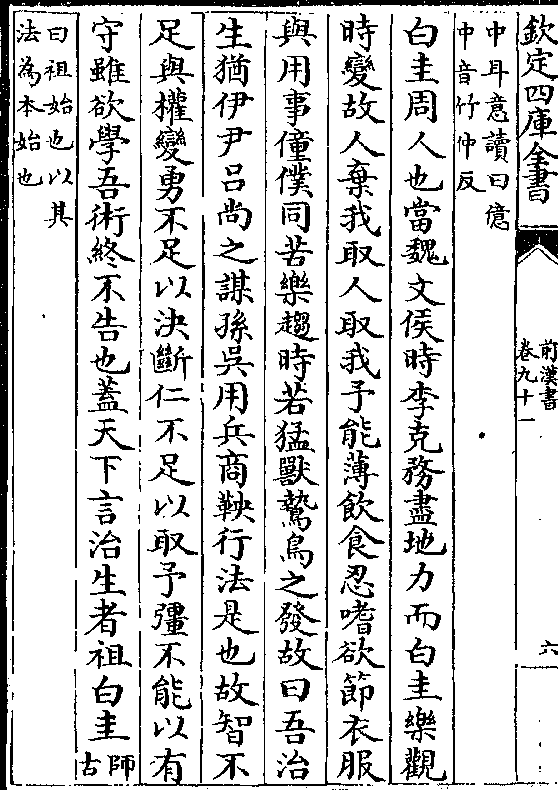 欽定四庫全書
前漢書
卷九十一
六
中耳意讀曰億
中音竹仲反
白圭周人也當魏文侯時李克務盡地力而白圭樂觀
時變故人棄我取人取我予能薄飲食忍嗜欲節衣服
與用事僮僕同苦樂趨時若猛獸鷙鳥之發故曰吾治
生猶伊尹呂尚之謀孫吳用兵商鞅行法是也故智不
足與權變勇不足以決斷仁不足以取予彊不能以有
守雖欲學吾術終不告也蓋天下言治生者祖白圭
師
古
曰祖始也以其
法為本始也